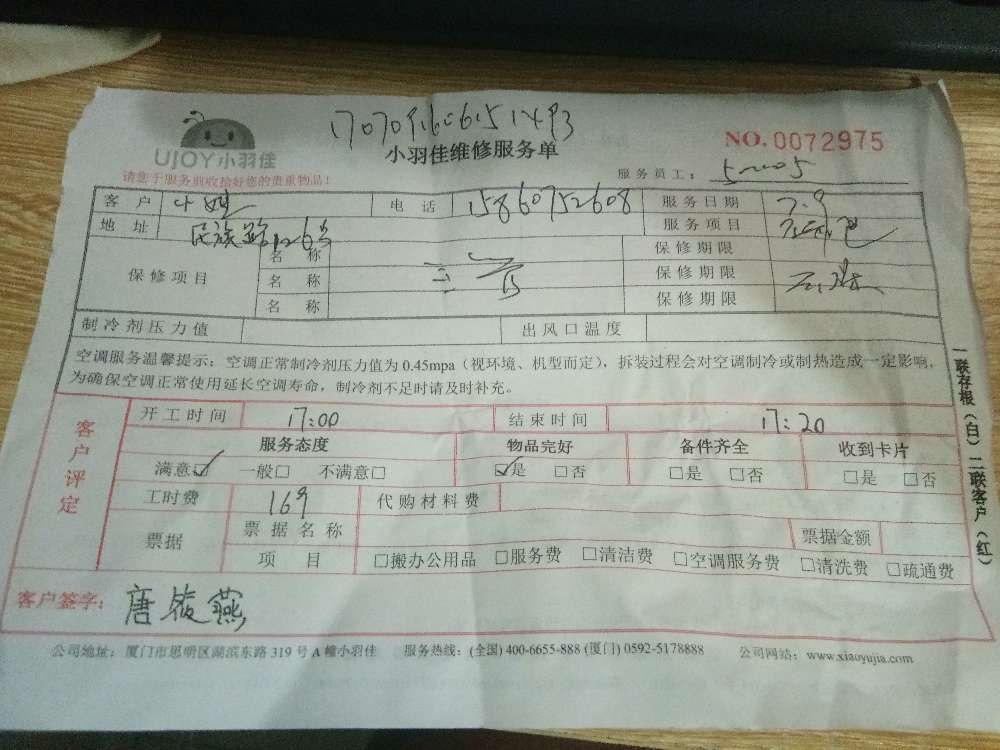 1707091606151493
UJOY小羽佳
小羽佳维修服务单
NO.0072975
请您于服务前收拾好您的贵重物品!
服务员工:
客户 电话 15860752608 服务日期 7.9
地址 民族路126号 服务项目
保修项目 名称 保修期限
名称 保修期限
名称 保修期限
制冷剂压力值 出风口温度
空调服务温馨提示:空调正常制冷剂压力值为0.45mpa(视环境、机型而定),拆装过程会对空调制冷或制热造成一定影响,
为确保空调正常使用延长空调寿命,制冷剂不足时请及时补充。
客户评定
开工时间 17:00 结束时间 17:20
服务态度 物品完好 备件齐全 收到卡片
满意☑ 一般□ 不满意□ ☑是 □否 □是 □否 □是 □否
工时费 169 代购材料费
票据 票据名称 票据金额
项目 □搬办公用品 □服务费 □清洁费 □空调服务费 □清洗费 □疏通费
客户签字: 唐 燕
一联存根(白)二联客户(红)
公司地址:厦门市思明区湖滨东路319号A幢小羽佳 服务热线:(全国)400-6655-888(厦门)0592-5178888 公司网站:www.xiaoyujia.com